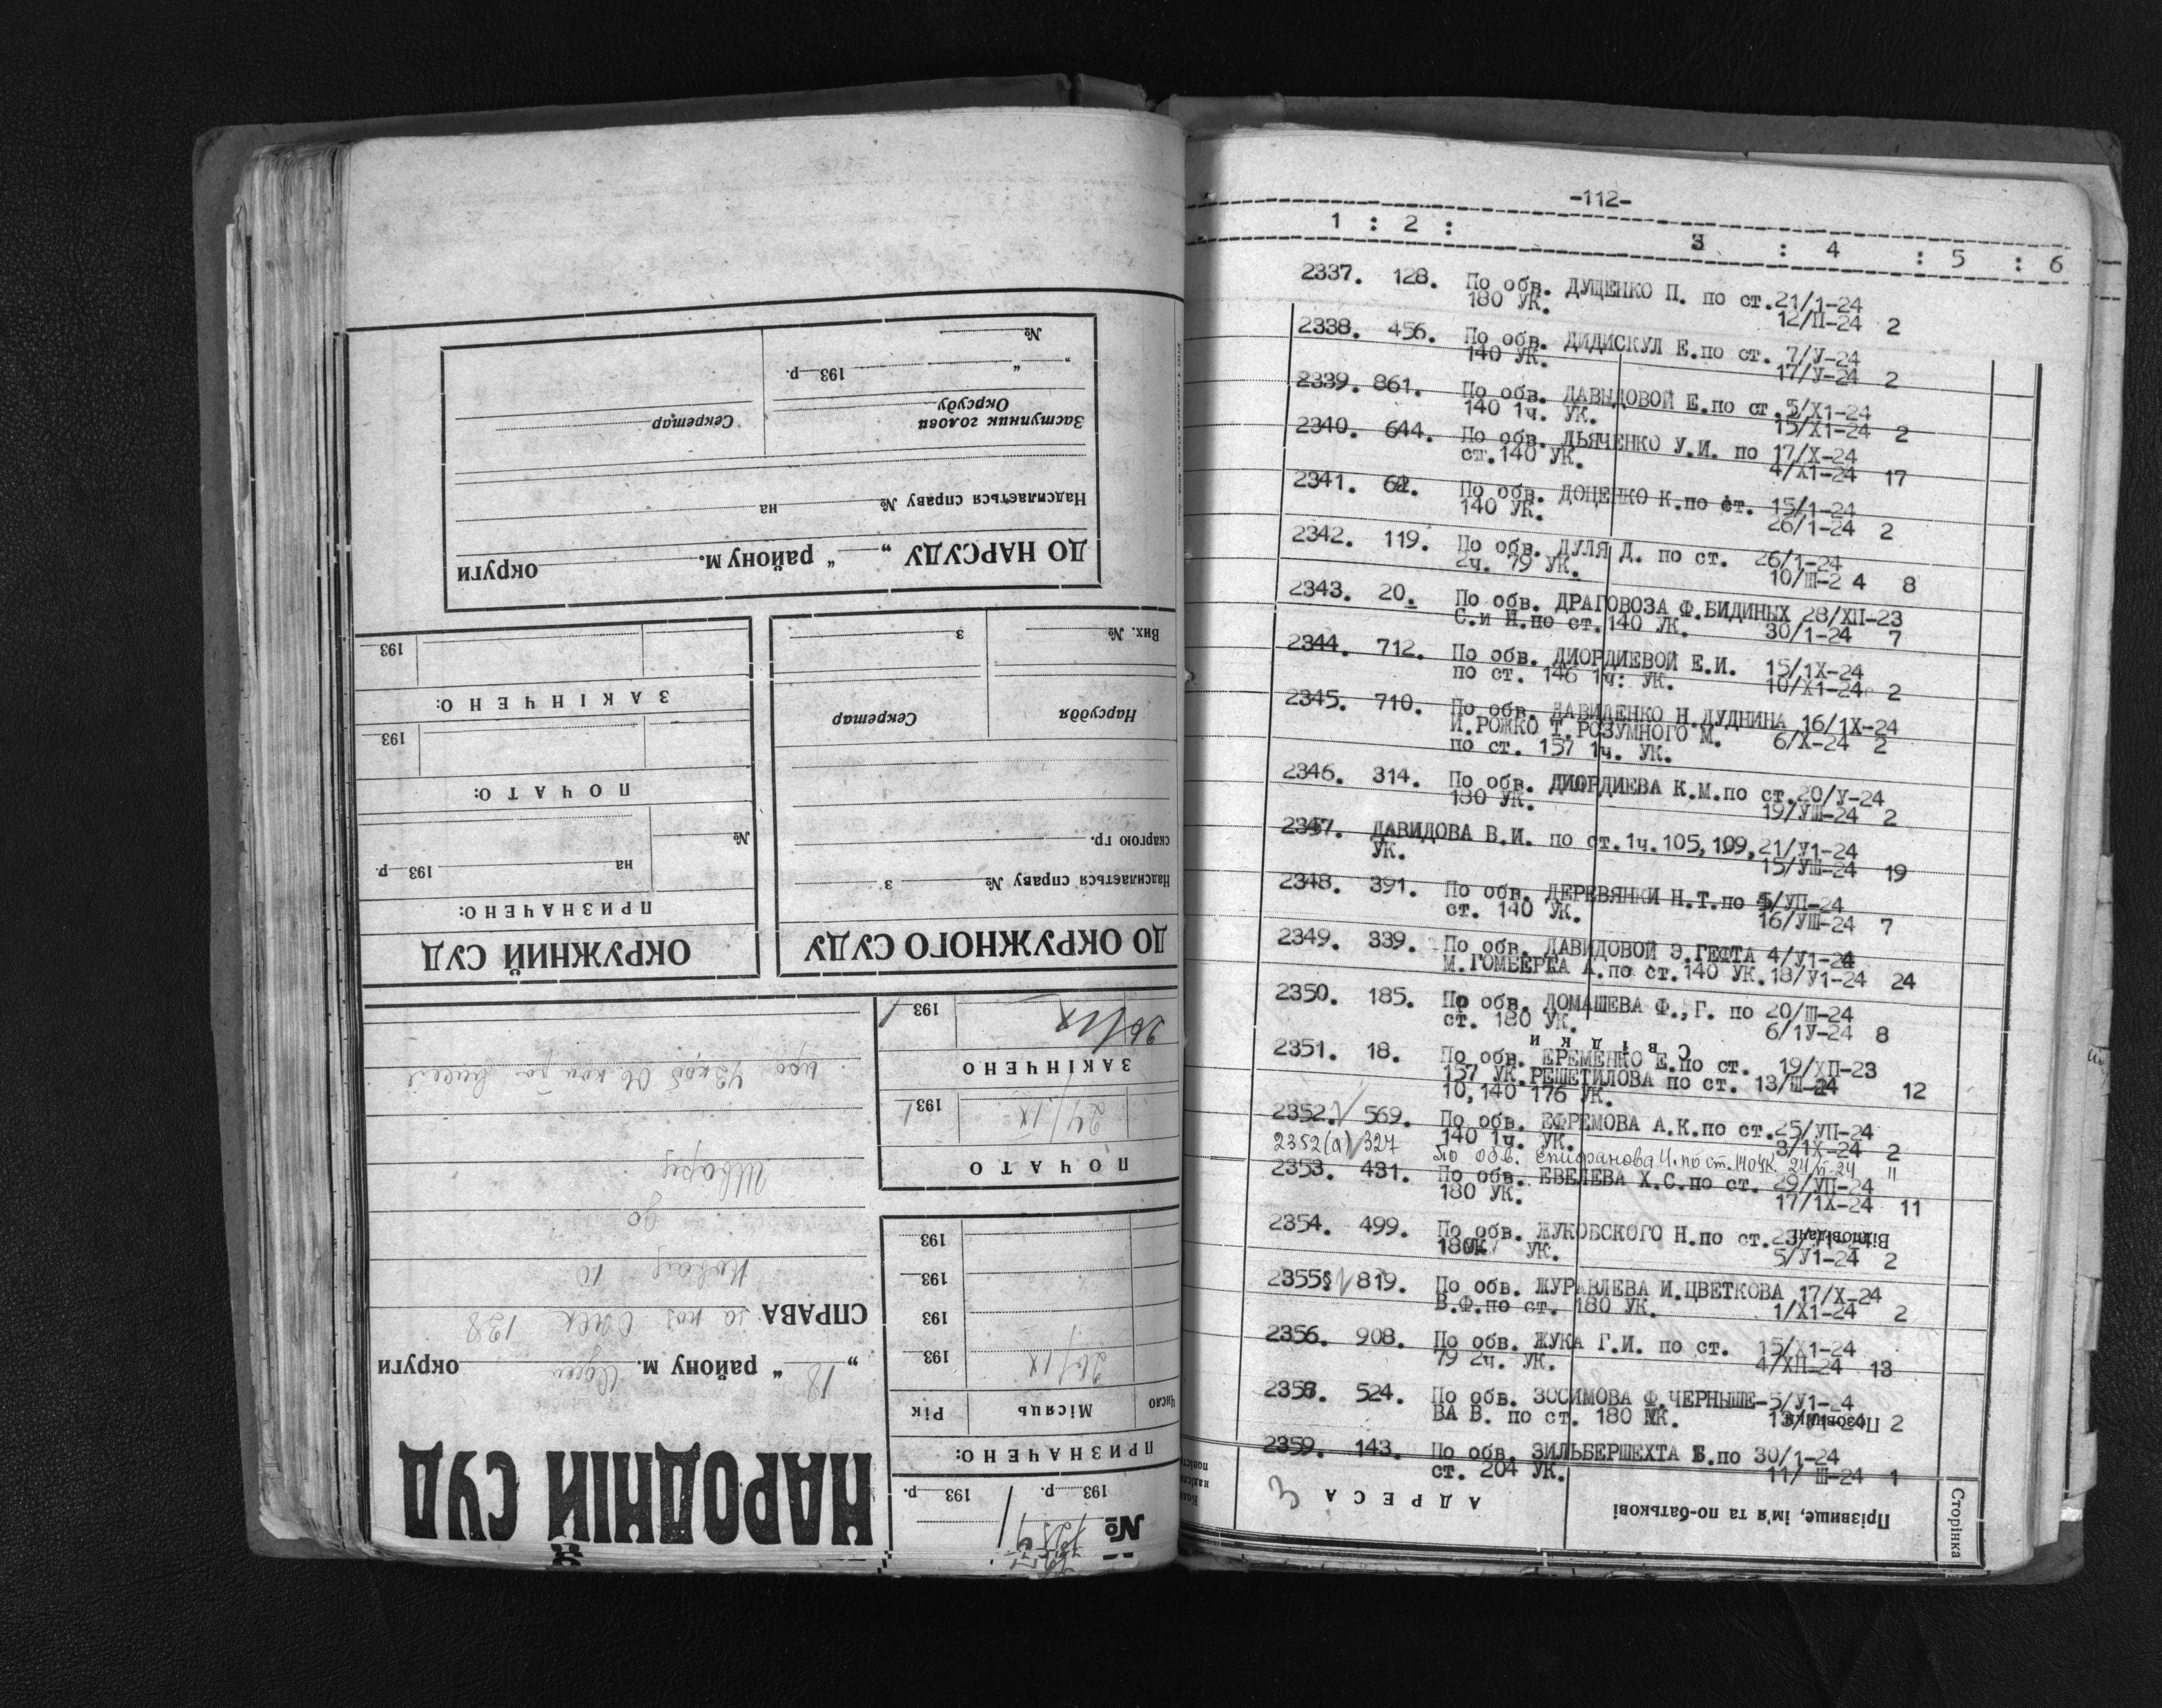 НАРОДНІЙ СУД
„ 18 “ району м. округи
СПРАВА
до
№
193 р. 193 р.
ПРИЗНАЧЕНО:
Число Місяць Рік
26/IX 193
193
193
193
ПОЧАТО
24/IX 193 1
ЗАКІНЧЕНО
26/IX 193 1
ДО ОКРУЖНОГО СУДУ
Надсилається справу № з
скаргою гр.
Нарсуддя Секретар
Вих. № з
ОКРУЖНИЙ СУД
ПРИЗНАЧЕНО:
№ на 193 р
ПОЧАТО:
193
ЗАКІНЧЕНО:
193
ДО НАРСУДУ „ “ району м. округи
Надсилається справу № на
Заступник голови
Окрсуду Секретар
„ “ 193 р.
№
-112-
1 : 2 : 3 : 4 : 5 : 6
2337. 128. По обв. ДУЩЕНКО П. по ст.21/1-24
180 УК. 12/П-24 2
2338. 456. По обв. ДИДИСКУЛ Е.по ст. 7/У-24
140 УК. 17/У-24 2
2339. 861. По обв. ДАВЫДОВОЙ Е.по ст.5/Х1-24
140 1ч. УК. 15/Х1-24 2
2340. 644. По обв. ДЬЯЧЕНКО У.И. по 17/Х-24
ст.140 УК. 4/Х1-24 17
2341. По обв. ДОЦЕНКО К.по ст. 15/1-24
140 УК. 26/1-24 2
2342. 119. По обв. ДУЛЯ Д. по ст. 26/1-24
2ч. 79 УК. 10/Ш-2 4 8
2343. 20. По обв. ДРАГОВОЗА Ф.БИДИНЫХ 28/ХП-23
С.и Н.по ст.140 УК. 30/1-24 7
2344. 712. По обв. ДИОРДИЕВОЙ Е.И. 15/1Х-24
по ст. 146 1ч: УК. 10/Х1-24 2
2345. 710. По обв. ДАВИДЕНКО Н.ДУДНИНА 16/1Х-24
И.РОЖКО Т.РОЗУМНОГО М. 6/Х-24 2
по ст. 157 1ч. УК.
2346. 314. По обв. ДИОРДИЕВА К.М.по ст.20/У-24
180 УК. 19/УШ-24 2
2347. ДАВИДОВА В.И. по ст.1ч.105,109,21/У1-24
УК. 15/УШ-24 19
2348. 391. По обв. ДЕРЕВЯНКИ Н.Т.по 5/УП-24
ст. 140 УК. 16/УШ-24 7
2349. 339. По обв. ДАВИДОВОЙ Э.ГЕФТА 4/У1-24
М.ГОМБЕРГА А.по ст.140 УК.18/У1-24 24
2350. 185. По обв. ДОМАШЕВА Ф.,Г. по 20/Ш-24
ст. 180 УК. 6/1У-24 8
Свідки
2351. 18. По обв. ЕРЕМЕНКО Е.по ст. 19/ХП-23
157 УК.РЕШЕТИЛОВА по ст. 13/Ш-24 12
10,140 176 УК.
2352. 569. По обв. ЕФРЕМОВА А.К.по ст.25/УП-24
140 1ч. УК. 3/1Х-24 2
2352(а) 327 По обв. Епифанова И. по ст.140УК. 24/VI-24 "
2353. 431. По обв. ЕВЕЛЕВА Х.С.по ст. 29/УП-24
180 УК. 17/1Х-24 11
2354. 499. По обв. ЖУКОВСКОГО Н.по ст.
Відповідачі
180 УК. 5/У1-24 2
2355 819. По обв. ЖУРАВЛЕВА И.ЦВЕТКОВА 17/Х-24
В.Ф.по ст. 180 УК. 1/Х1-24 2
2356. 908. По обв. ЖУКА Г.И. по ст. 15/Х1-24
79 2ч. УК. 4/ХП-24 13
524. По обв. ЗОСИМОВА Ф.ЧЕРНЫШЕ-5/У1-24
ВА В. по ст. 180 УК. 2
Позовники
2359. 143. По обв. ЗИЛЬБЕРШЕХТА Б.по 30/1-24
ст. 204 УК. 11/ Ш-24 1
АДРЕСА
Прізвище, ім'я та по-батькові
Сторінка